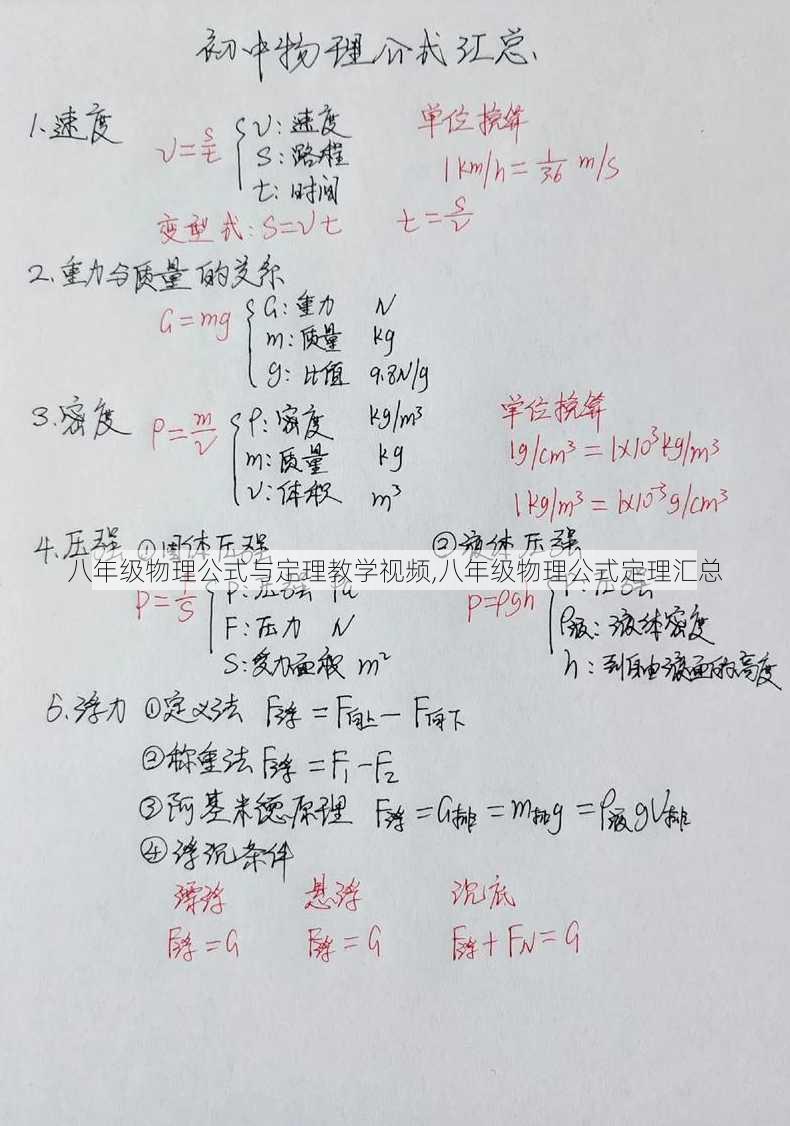 初中物理公式汇总
1.速度 v=s/t v:速度 单位换算
s:路程 1km/h=1/3.6 m/s
t:时间
变型式:s=vt t=s/v
2.重力与质量的关系
G=mg G:重力 N
m:质量 kg
g:比值 9.8N/g
3.密度 ρ=m/v ρ:密度 kg/m³ 单位换算
m:质量 kg 1g/cm³=1×10³kg/m³
v:体积 m³ 1kg/m³=1×10⁻³g/cm³
4.压强 ①固体压强 ②液体压强
八年级物理公式与定理教学视频,八年级物理公式定理汇总
P=F/S P:压强 Pa P=ρgh P:压强
F:压力 N ρ液:液体密度
S:受力面积 m² h:到自由液面的高度
5.浮力 ①定义法 F浮=F向上-F向下
②称重法 F浮=F₁-F₂
③阿基米德原理 F浮=G排=m排g=ρ液gV排
④浮沉条件
漂浮 悬浮 沉底
F浮=G F浮=G F浮+FN=G